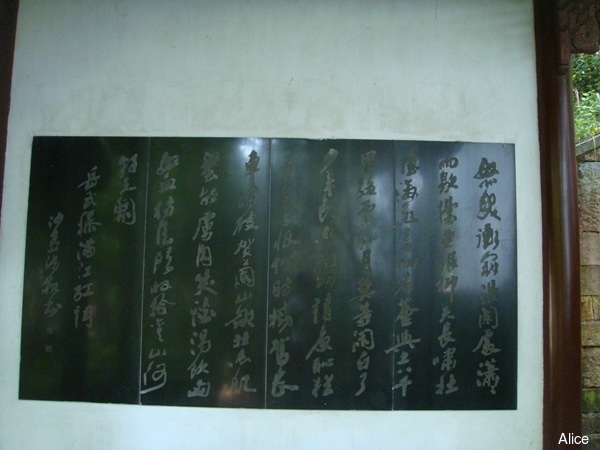 怒髮衝冠憑闌處瀟瀟
雨歇擡望眼仰天長嘯壯
懷激烈三十功名塵與土八千
里路雲和月莫等閒白了
少年頭空悲切靖康恥猶
未雪臣子恨何時滅駕長
車踏破賀蘭山缺壯志飢
餐胡虜肉笑談渴飲匈
奴血待從頭收拾舊山河
朝天闕
岳武穆滿江紅詞
沙孟海敬書
Alice